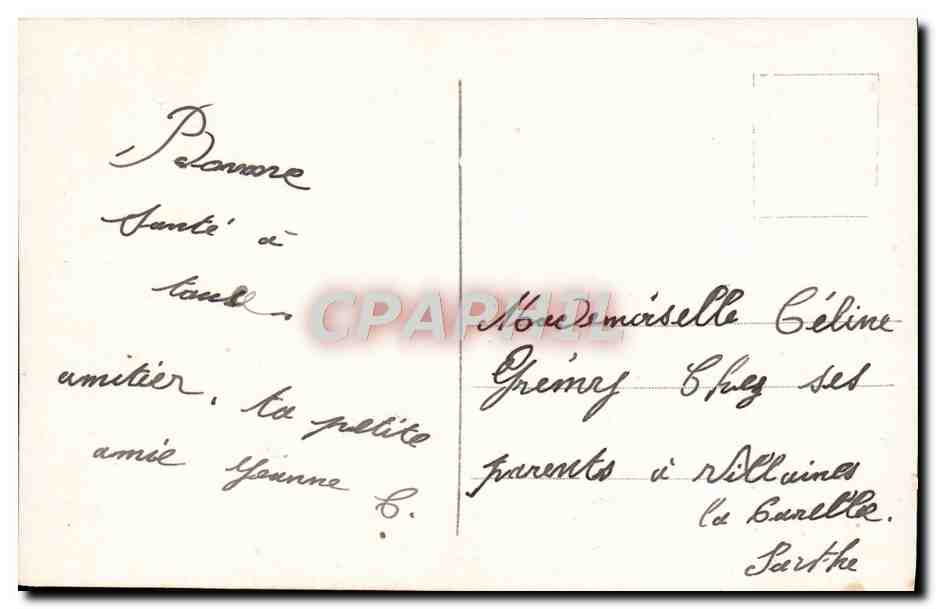 Bonne
Santé à
tous.
amitier. ta petite
amie Jeanne C.
Mademoiselle Céline
Grémy Chez ses
parents à Villaines
la Carelle.
Sarthe
CPAPHIL